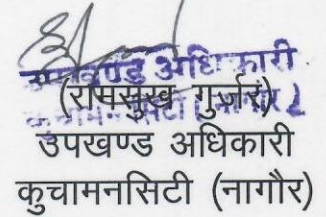 उपखण्ड अधिकारी
(रामसुख गुर्जर)
उपखण्ड अधिकारी
कुचामनसिटी (नागौर)